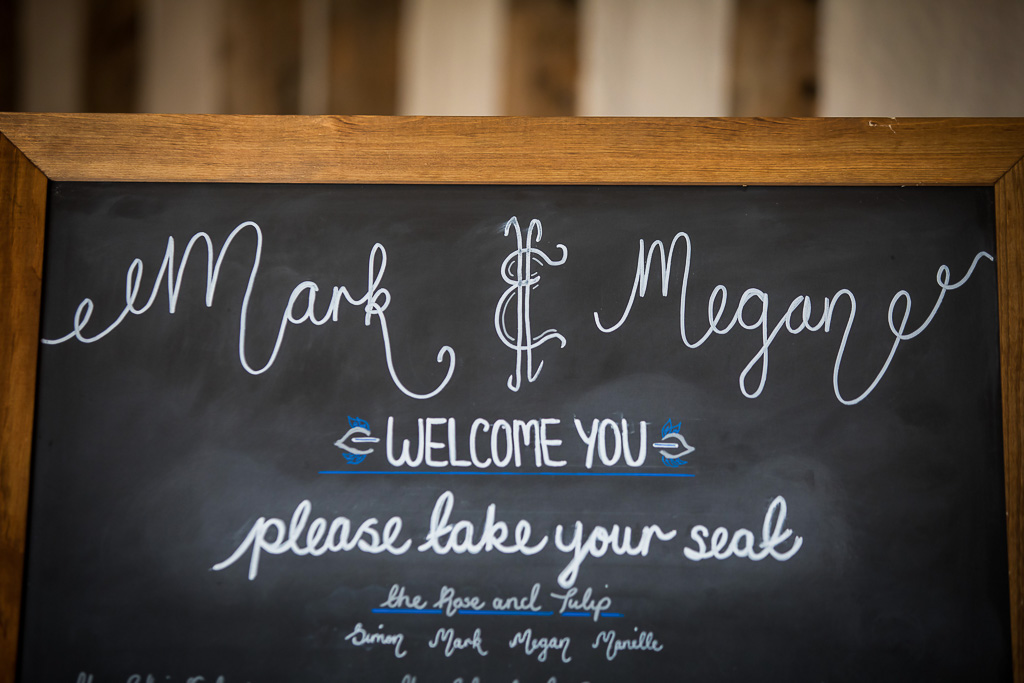 Mark & Megan
WELCOME YOU
please take your seat
the Rose and Tulip
Simon Mark Megan Marielle